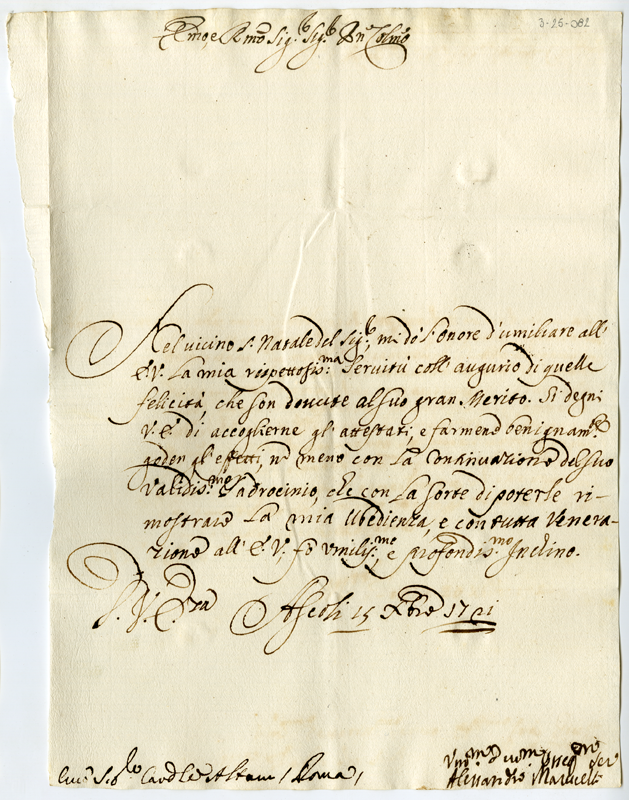 3-25-082
Emo, e Rmo Sig.r Sig.r Pn Colmo
Nel vicino S. Natale del Sig.r, mi dò l'onore d'umiliare all'
E.V. La mia rispettosis.ma Servitù coll' augurio di quelle
felicità, che son dovute al suo gran Merito. Si degni
V.E. di accoglierne gl' attestati, e farmene benignam.te
goder gl' effetti, nō meno con La Continuazione del suo
Validis.mo Padrocinio, che con La sorte di poterle ri-
mostrare La mia Ubedienza, e con tutta Venera-
zione all' E.V. fo Umilis.me, e profondis.mo Inclino.
D. V. E.za Ascoli 15 Xbre 1721
Em.o Sig.r Cardle Altani / Roma /
Um.mo D uo.mo Osseq.mo Ser
Alessandro Marucelli